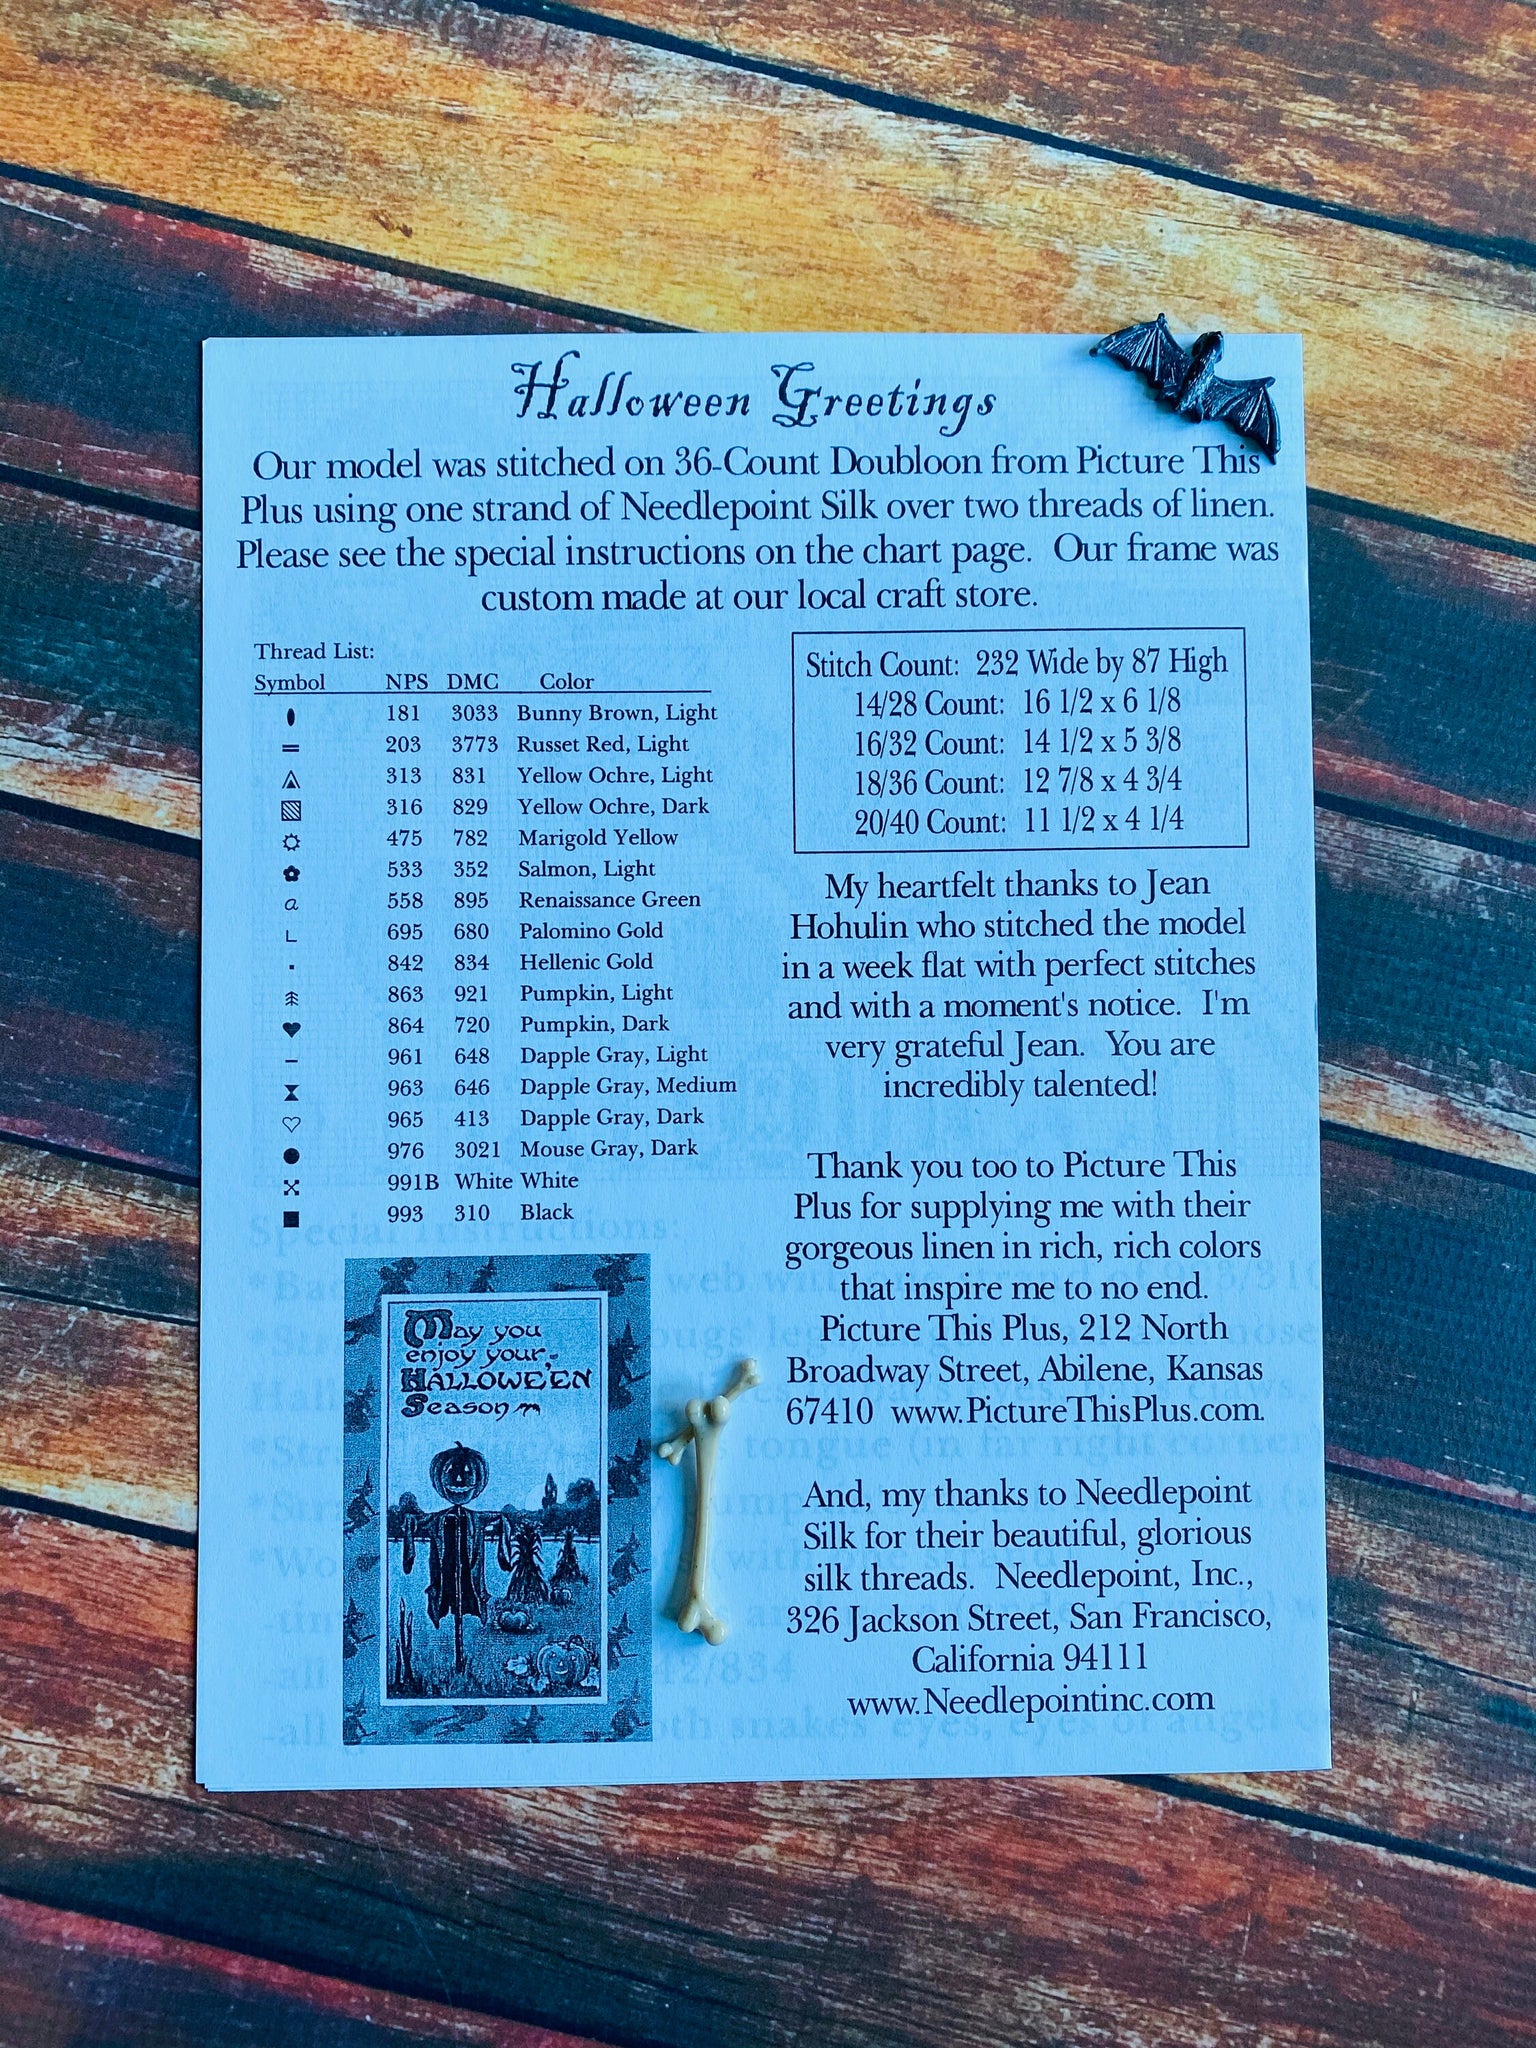 Halloween Greetings
Our model was stitched on 36-Count Doubloon from Picture This
Plus using one strand of Needlepoint Silk over two threads of linen.
Please see the special instructions on the chart page. Our frame was
custom made at our local craft store.
Thread List:
Symbol NPS DMC Color
181 3033 Bunny Brown, Light
203 3773 Russet Red, Light
313 831 Yellow Ochre, Light
316 829 Yellow Ochre, Dark
475 782 Marigold Yellow
533 352 Salmon, Light
a 558 895 Renaissance Green
L 695 680 Palomino Gold
842 834 Hellenic Gold
863 921 Pumpkin, Light
864 720 Pumpkin, Dark
961 648 Dapple Gray, Light
963 646 Dapple Gray, Medium
965 413 Dapple Gray, Dark
976 3021 Mouse Gray, Dark
991B White White
993 310 Black
Stitch Count: 232 Wide by 87 High
14/28 Count: 16 1/2 x 6 1/8
16/32 Count: 14 1/2 x 5 3/8
18/36 Count: 12 7/8 x 4 3/4
20/40 Count: 11 1/2 x 4 1/4
My heartfelt thanks to Jean
Hohulin who stitched the model
in a week flat with perfect stitches
and with a moment's notice. I'm
very grateful Jean. You are
incredibly talented!
Thank you too to Picture This
Plus for supplying me with their
gorgeous linen in rich, rich colors
that inspire me to no end.
Picture This Plus, 212 North
Broadway Street, Abilene, Kansas
67410 www.PictureThisPlus.com.
And, my thanks to Needlepoint
Silk for their beautiful, glorious
silk threads. Needlepoint, Inc.,
326 Jackson Street, San Francisco,
California 94111
www.Needlepointinc.com
May you
enjoy your
HALLOWE'EN
Season
Special Instructions:
web with
tongue (in far right corner)
42/834
snakes' eyes, eyes